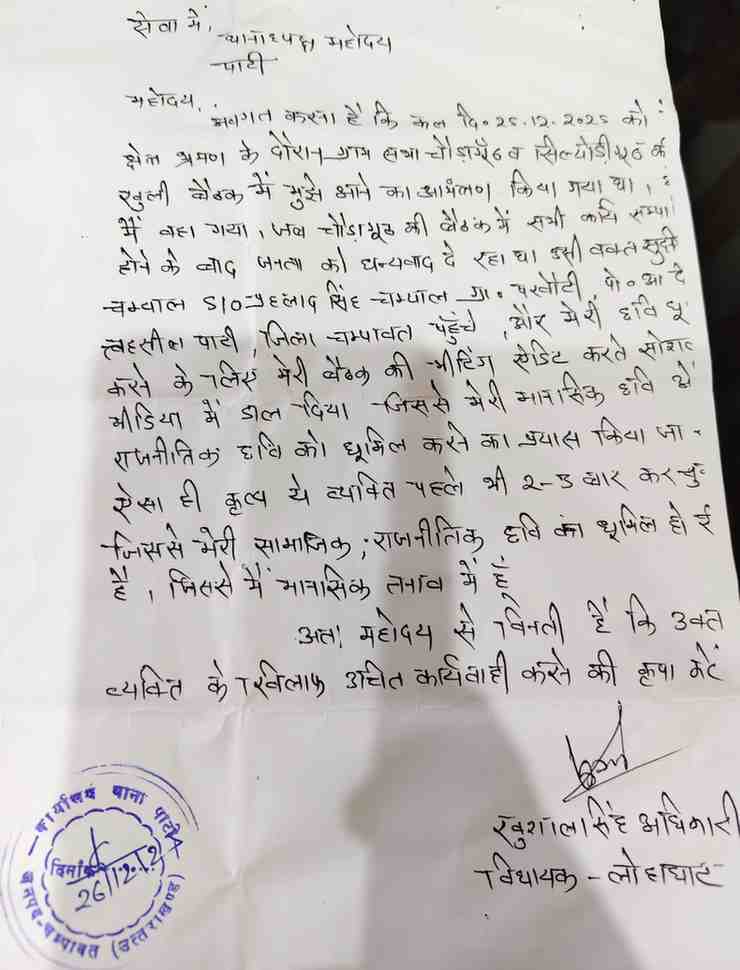 सेवा में,
थानाध्यक्ष महोदय
पाटी
महोदय,
अवगत कराना है कि कल दि० 25.12.2025 को
क्षेत्र भ्रमण के दौरान ग्राम सभा चौड़ामूठ व सिल्योड़ी
खुली बैठक में मुझे आने का आमंत्रण किया गया था,
मैं वहा गया, जब चौड़ामूठ की बैठक में सभी कार्य सम्पा
होने के बाद जनता को धन्यवाद दे रहा था उसी वक्त
चम्याल S/O प्रहलाद सिंह चम्याल ग्रा० परवौटी, पो०
तहसील पाटी, जिला चम्पावत पहुँचे, और मेरी छवि धू
करने के लिए मेरी बैठक की मीटिंग ऐडिट करते सोशल
मीडिया में डाल दिया जिससे मेरी मानसिक छवि
राजनीतिक छवि को धूमिल करने का प्रयास किया जा
ऐसा ही कृत्य ये व्यक्ति पहले भी 2-3 बार कर चु
जिससे मेरी सामाजिक, राजनीतिक छवि का धूमिल हो ई
है, जिससे मैं मानसिक तनाव में हूँ
अतः महोदय से विनती है कि उक्त
व्यक्ति के खिलाफ उचित कार्यवाही करने की कृपा करें
खुशाल सिंह अधिकारी
विधायक - लोहाघाट
कार्यालय थाना पाटी
दिनांक
26/12/2
जनपद-चम्पावत (उत्तराखण्ड)